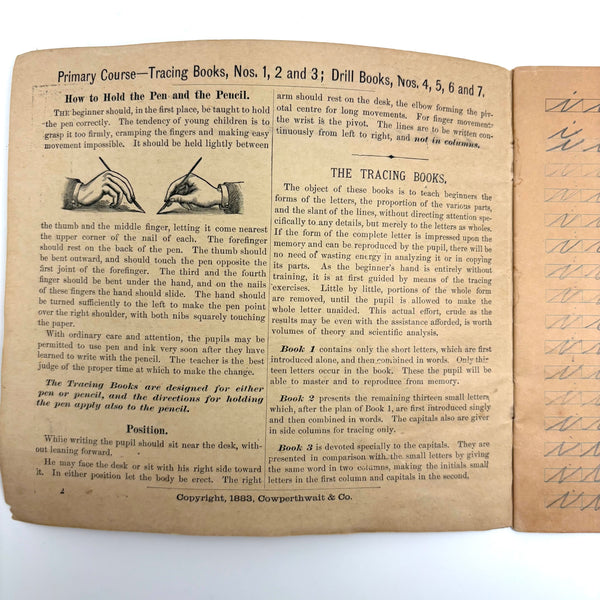 Primary Course—Tracing Books, Nos. 1, 2 and 3; Drill Books, Nos. 4, 5, 6 and 7.
How to Hold the Pen and the Pencil.
THE beginner should, in the first place, be taught to hold
the pen correctly. The tendency of young children is to
grasp it too firmly, cramping the fingers and making easy
movement impossible. It should be held lightly between
the thumb and the middle finger, letting it come nearest
the upper corner of the nail of each. The forefinger
should rest on the back of the pen. The thumb should
be bent outward, and should touch the pen opposite the
first joint of the forefinger. The third and the fourth
finger should be bent under the hand, and on the nails
of these fingers the hand should slide. The hand should
be turned sufficiently to the left to make the pen point
over the right shoulder, with both nibs squarely touching
the paper.
With ordinary care and attention, the pupils may be
permitted to use pen and ink very soon after they have
learned to write with the pencil. The teacher is the best
judge of the proper time at which to make the change.
The Tracing Books are designed for either
pen or pencil, and the directions for holding
the pen apply also to the pencil.
Position.
While writing the pupil should sit near the desk, with-
out leaning forward.
He may face the desk or sit with his right side toward
it. In either position let the body be erect. The right
2
arm should rest on the desk, the elbow forming the piv-
otal centre for long movements. For finger movements
the wrist is the pivot. The lines are to be written con-
tinuously from left to right, and not in columns.
THE TRACING BOOKS.
The object of these books is to teach beginners the
forms of the letters, the proportion of the various parts,
and the slant of the lines, without directing attention spe-
cifically to any details, but merely to the letters as wholes.
If the form of the complete letter is impressed upon the
memory and can be reproduced by the pupil, there will be
no need of wasting energy in analyzing it or in copying
its parts. As the beginner's hand is entirely without
training, it is at first guided by means of the tracing
exercises. Little by little, portions of the whole form
are removed, until the pupil is allowed to make the
whole letter unaided. This actual effort, crude as the
results may be even with the assistance afforded, is worth
volumes of theory and scientific analysis.
Book 1 contains only the short letters, which are first
introduced alone, and then combined in words. Only thir-
teen letters occur in the book. These the pupil will be
able to master and to reproduce from memory.
Book 2 presents the remaining thirteen small letters
which, after the plan of Book 1, are first introduced singly
and then combined in words. The capitals also are given
in side columns for tracing only.
Book 3 is devoted specially to the capitals. They are
presented in comparison with the small letters by giving
the same word in two columns, making the initials small
letters in the first column and capitals in the second.
Copyright, 1883, Cowperthwait & Co.